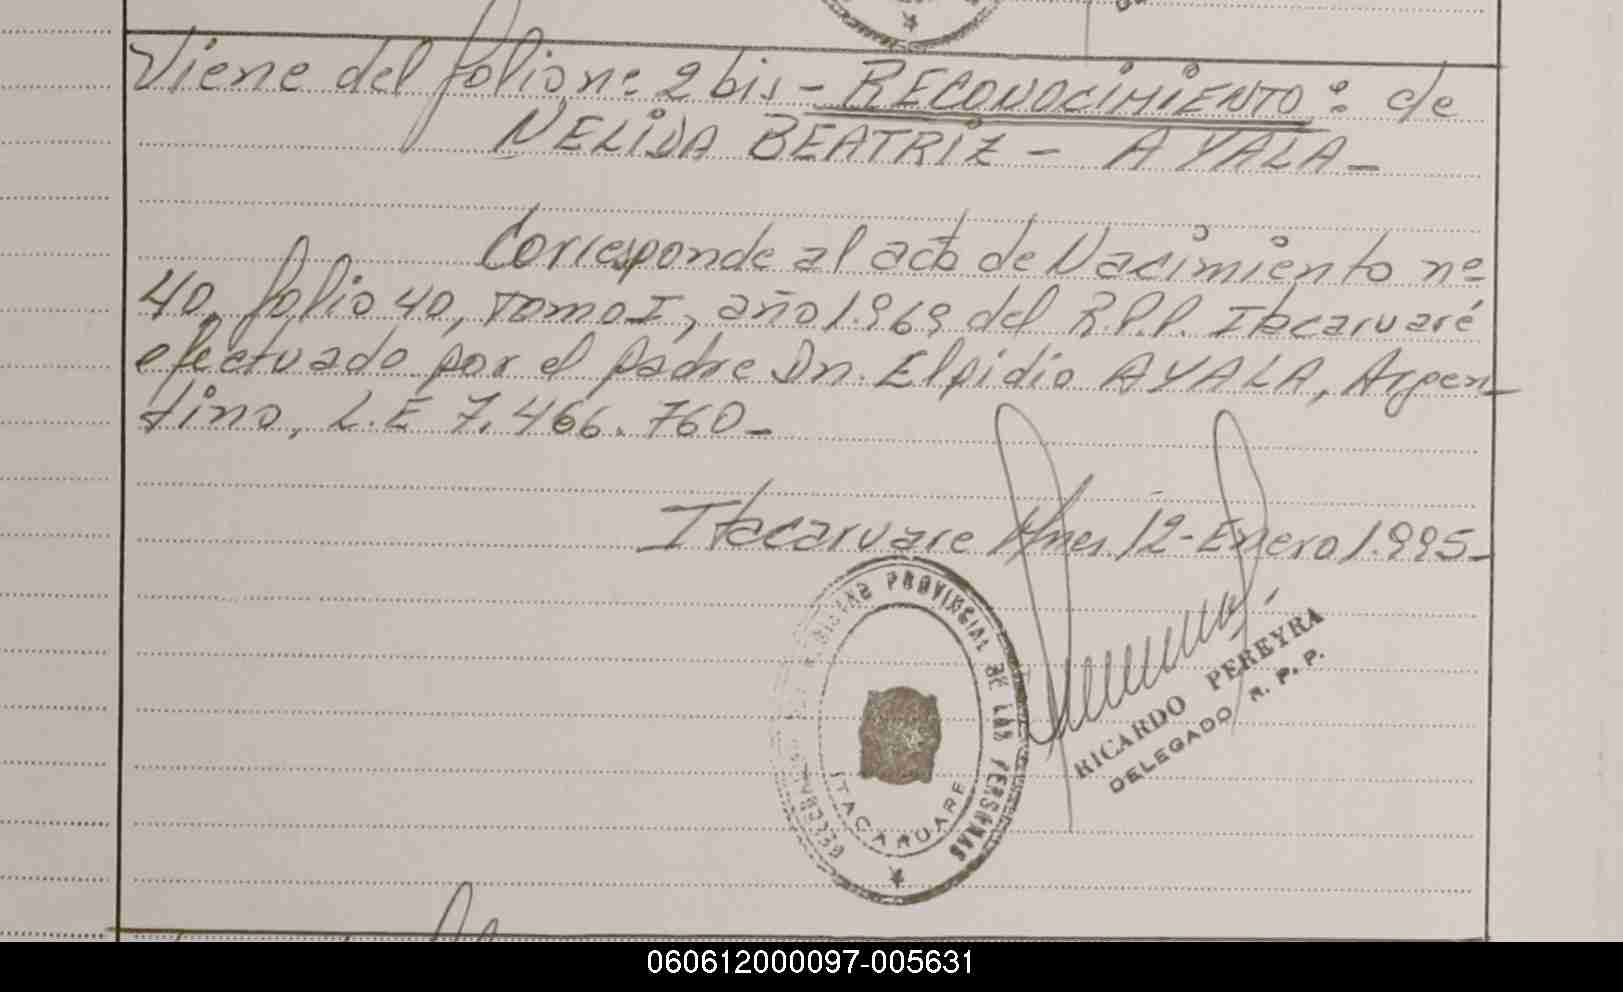 Viene del folio nº 2 bis - RECONOCIMIENTO: de
NELIDA BEATRIZ - AYALA -
Corresponde al acta de Nacimiento nº
40, folio 40, Tomo I, año 1.969 del R.P.P. Itacaruaré
efectuado por el padre Dn. Elpidio AYALA, Argen-
tino, L.E 7.466.760 -
Itacaruare Mnes 12 - Enero 1.995 -
PROVINCIAL DE LAS PERSONAS
ITACARUARE
RICARDO PEREYRA
DELEGADO R. P. P.
060612000097-005631